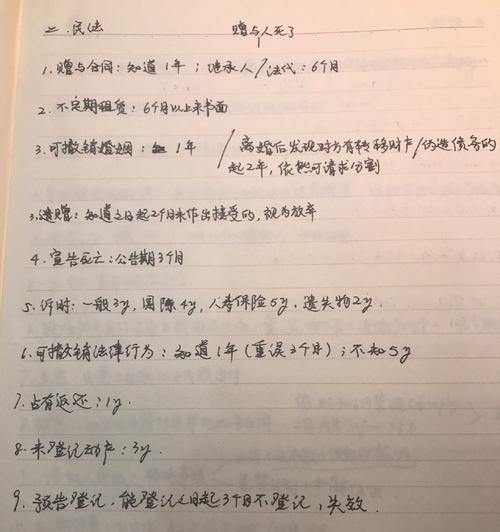 二.民法
赠与人死了
1.赠与合同:知道1年;继承人/法代:6个月
2.不定期租赁:6个月以上未书面
3.可撤销婚姻:1年 / 离婚后发现对方有转移财产/伪造债务的
起2年,依然可请求分割
3.遗赠:知道之日起2个月未作出接受的,视为放弃
4.宣告死亡:公告期3个月
5.诉时:一般3y,国际4y,人寿保险5y,遗失物2y.
6.可撤销法律行为:知道1年(重误3个月);不知5y
7.占有返还:1y.
8.未登记动产:3y.
9.预告登记,能登记之日起3个月不登记,失效.